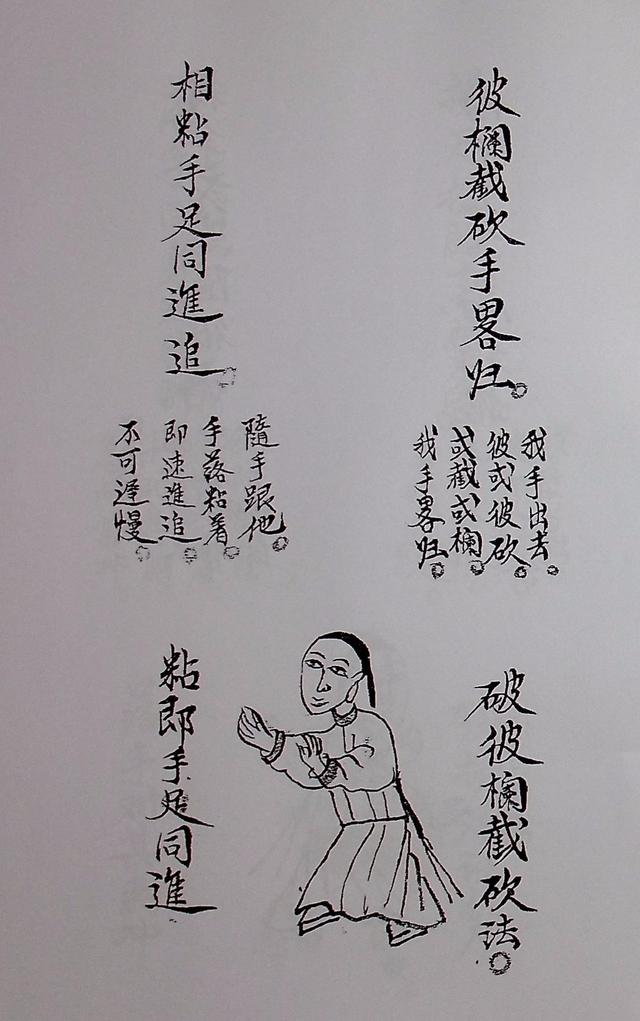 彼欄截砍手畧归。
我手出去。
彼或彼砍。
或截或欄。
我手畧归。
相粘手足同進追。
隨手跟他。
手落粘着。
即速進追。
不可遲慢。
破彼欄截砍法。
粘即手足同進